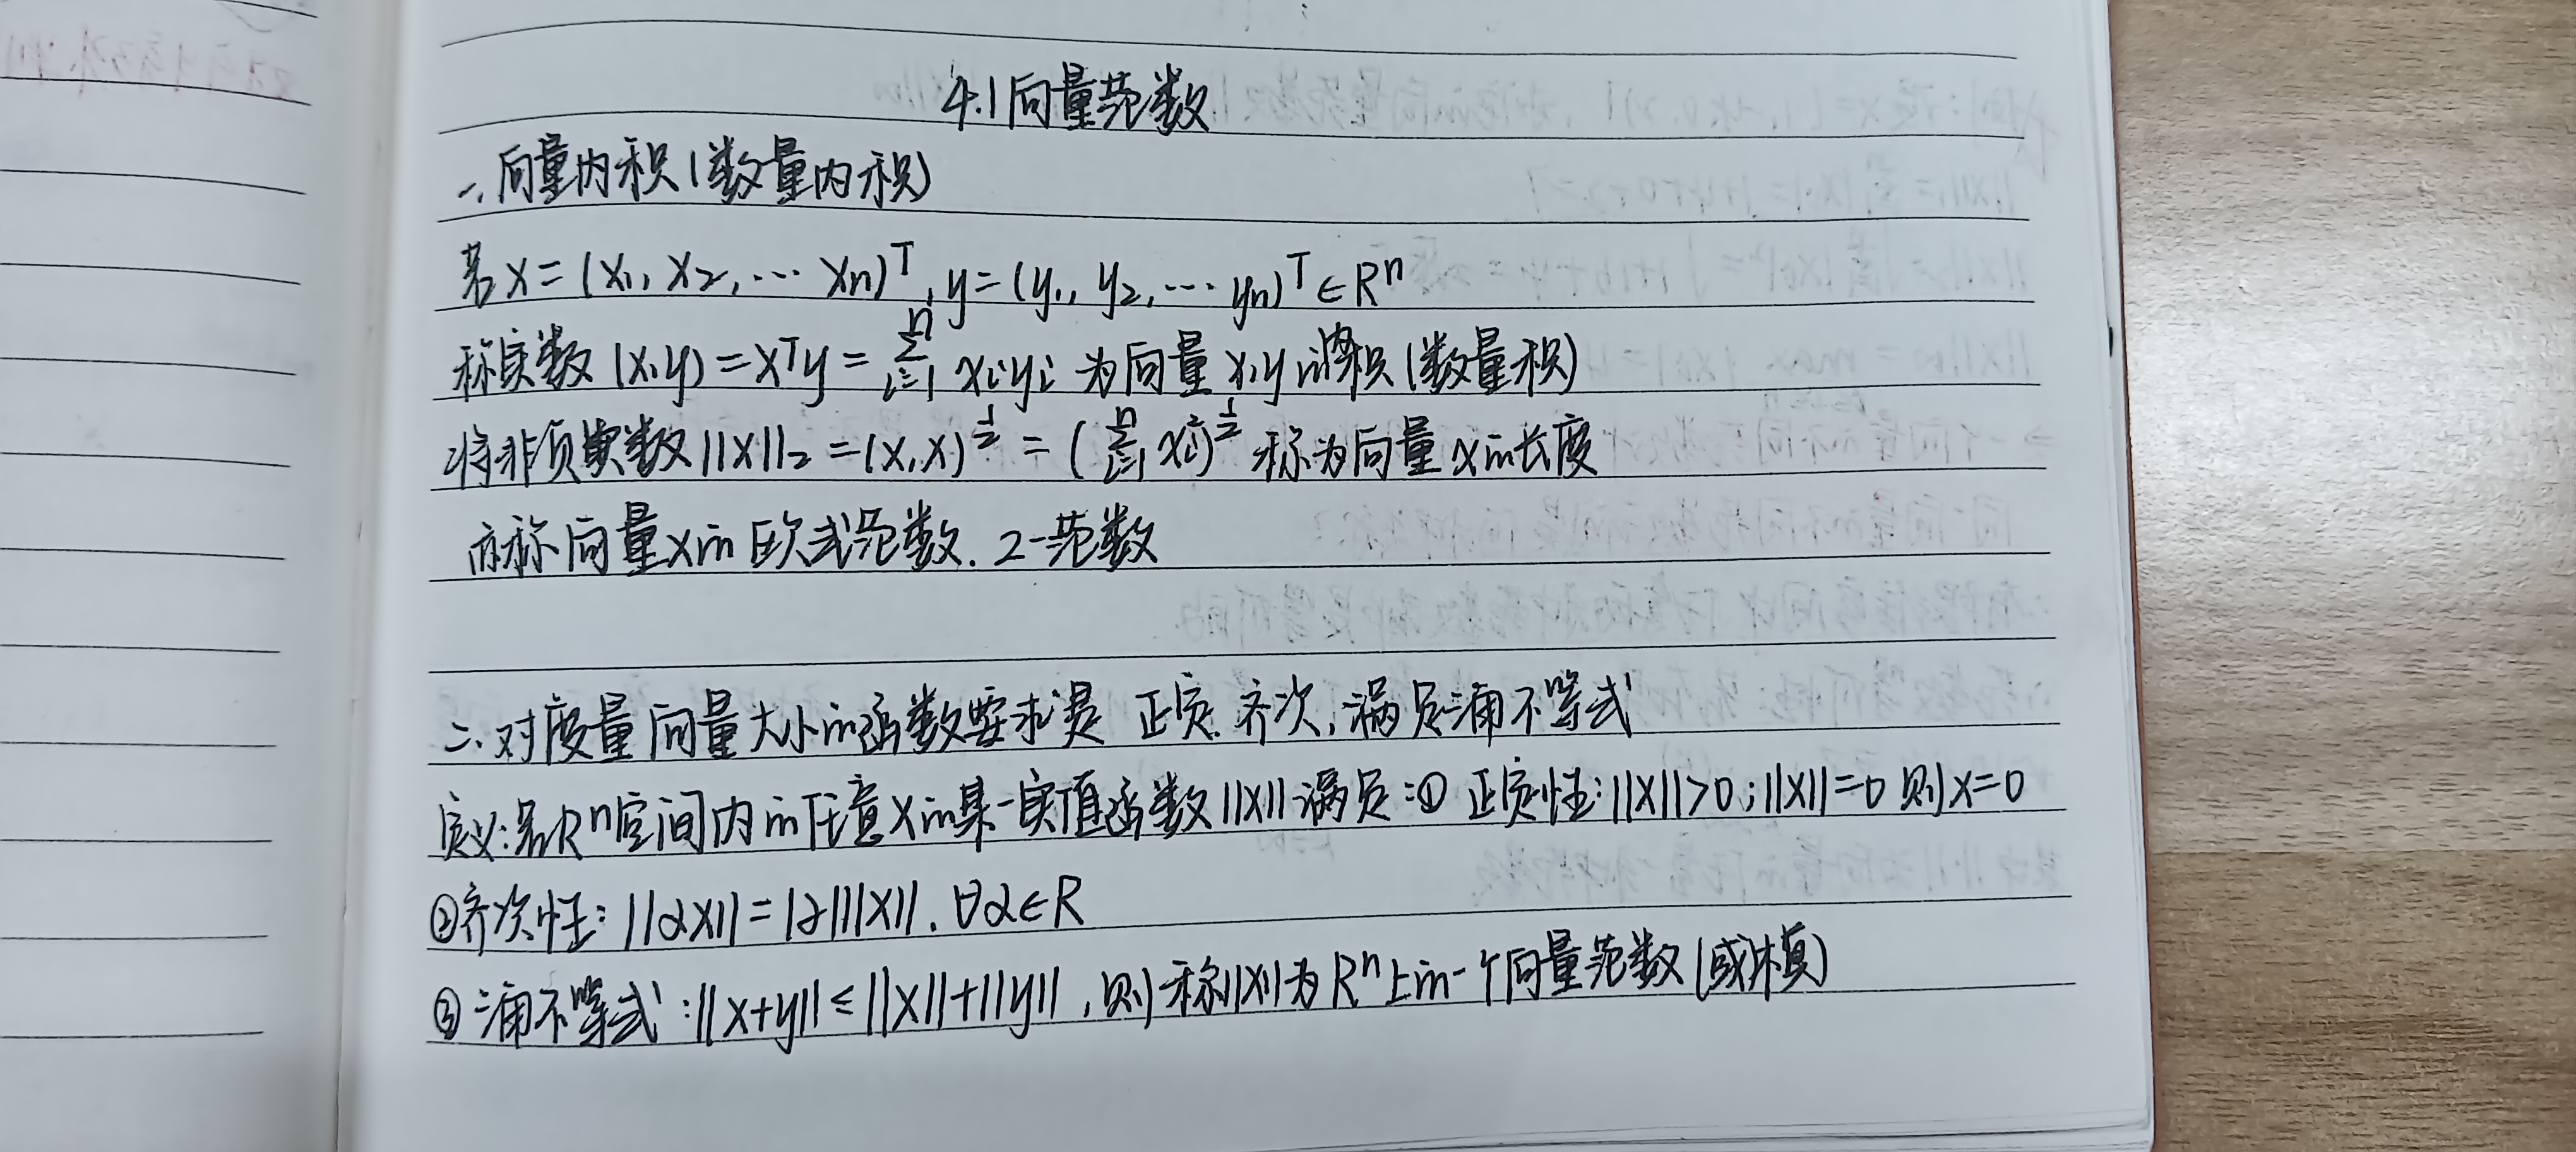 4.1 向量范数
一、向量内积(数量内积)
若 x=(x₁, x₂, … xn)ᵀ, y=(y₁, y₂, … yn)ᵀ∈Rⁿ
称实数 (x,y)=xᵀy=∑ⁿᵢ₌₁ xᵢyᵢ 为向量 x,y 的内积(数量积)
将非负实数 ||x||₂=(x,x)^½=(∑ⁿᵢ₌₁ xᵢ²)^½ 称为向量 x 的长度
亦称向量x的欧式范数. 2-范数
二、对度量向量大小的函数要求是 正定. 齐次, 满足三角不等式
定义:若Rⁿ空间内的任意x的某一实值函数||x||满足:① 正定性:||x||>0;||x||=0 则x=0
②齐次性: ||αx||=|α|||x||. ∀α∈R
③三角不等式:||x+y||≤||x||+||y||, 则称||x||为Rⁿ上的一个向量范数(或模)